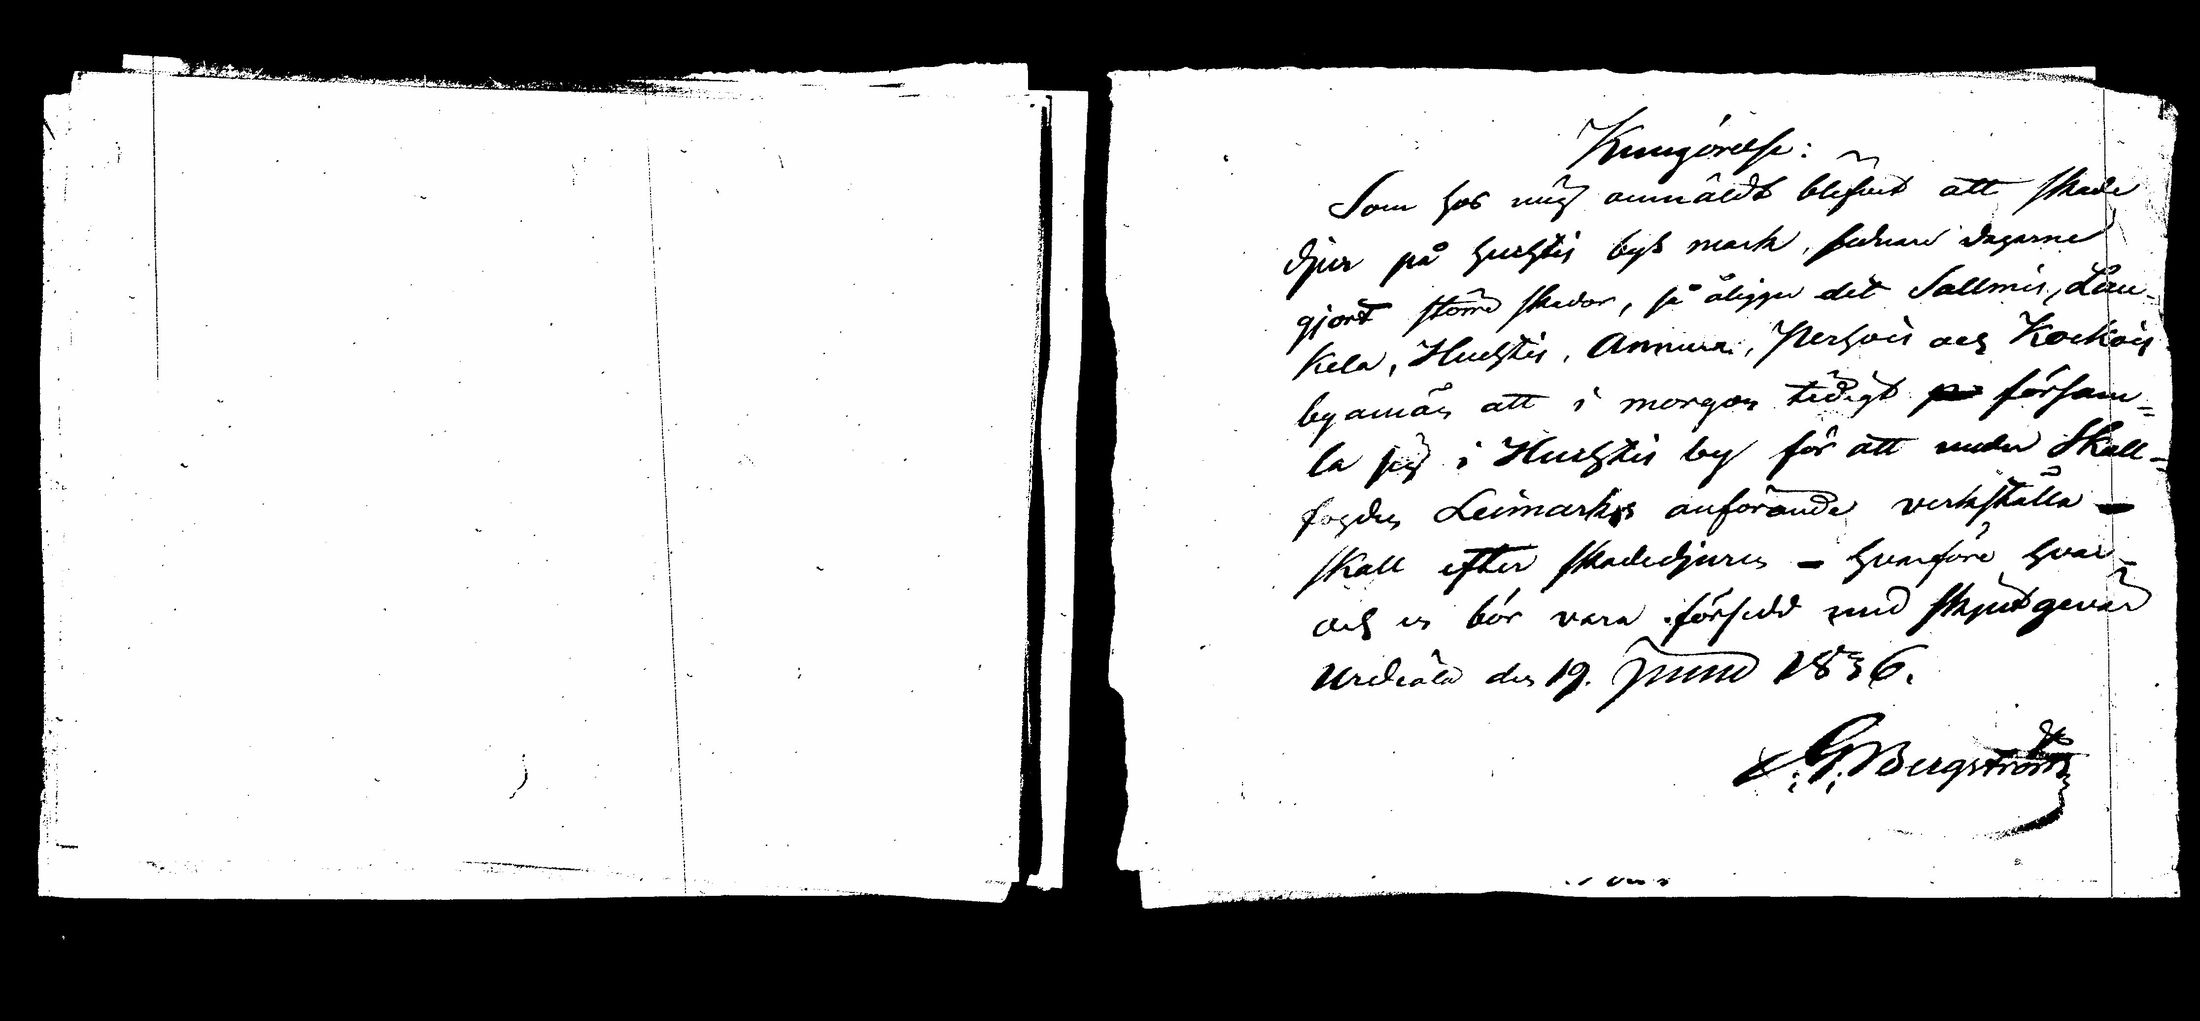 Kungörelse:
Som hos mig anmäldt blifvit att skade
djur på Huhtis bys mark, sednare dagarne
gjort större skador, så åligger det Sallmis, Lau-
kela, Huhtis, Annula, Perhois och Kockois
byamän att i morgon tidigt försama-
la sig i Huhtis by för att under Skall-
fogden Leimarks anförande verkställa
skall efter skadedjuren – hvarföre hvar
och en bör vara försedd med skjutgevär
Urdiala den 19. Junii 1836.
G. Bergström